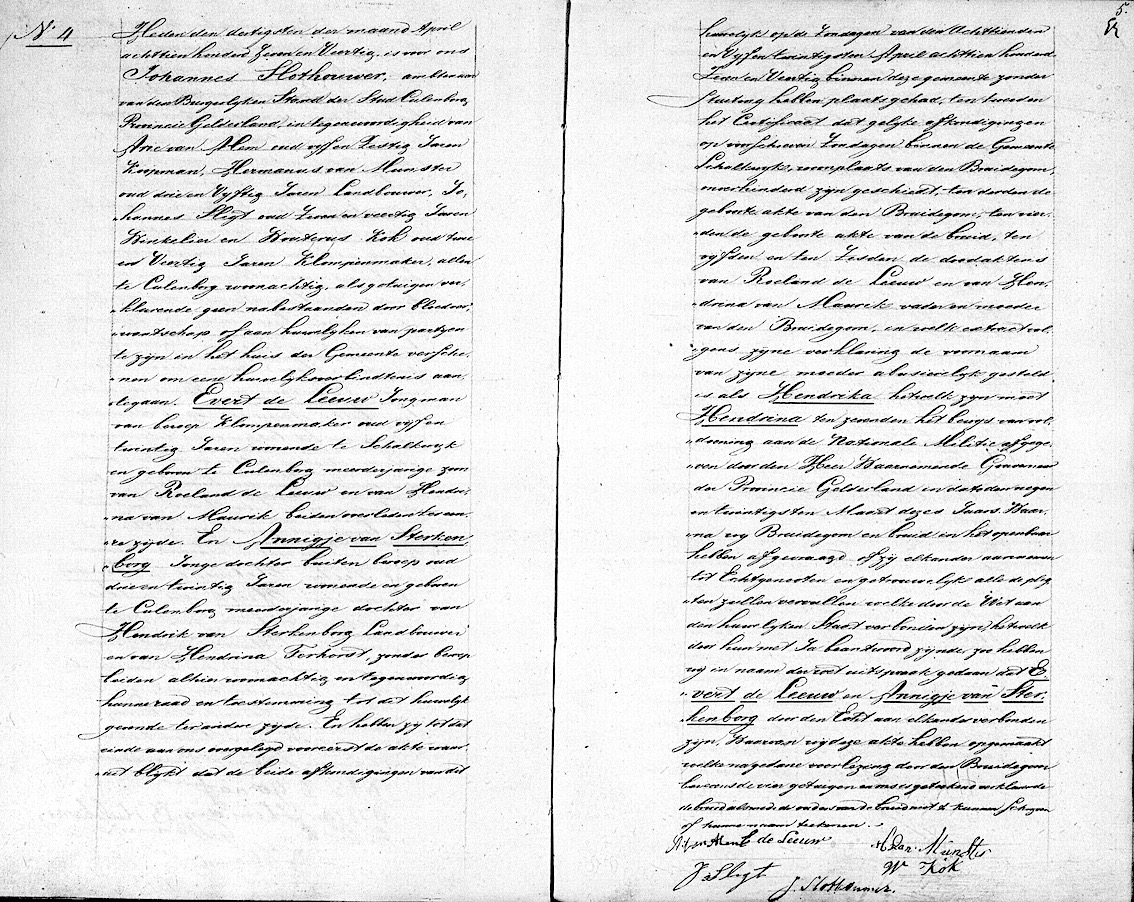 N. 4
Heden den dertigsten der maand April
achttien honderd Zeven en Veertig, is voor ons
Johannes Slothouwer, ambtenaar
van den Burgerlyken Stand der Stad Culenborg
Provincie Gelderland, in tegenwoordigheid van
Arie van Alem oud vyf en Zestig Jaren
Koopman, Hermanus van Munster
oud drie en Vyftig Jaren Landbouwer, Jo,
hannes Sligt oud Zeven en veertig Jaren
Winkelier en Wouterus Kok oud twee
en Veertig Jaren Klompenmaker, allen
te Culenborg woonachtig, als getuigen ver,
klarende geen nabestaanden door bloedver,
wantschap of aan huwelyken van partyen
te zyn in het huis der Gemeente versche,
nen om eene huwelyksverbindtenis aan,
tegaan. Evert de Leeuw Jongman
van beroep Klompenmaker oud vyf en
twintig Jaren wonende te Schalkwyk
en geboren te Culenborg meerderjarige zoon
van Roeland de Leeuw en van Hendri,
na van Maurik beiden overleden ter eene,
re zyde. En Annigje van Sterken
borg Jonge dochter buiten beroep oud
drie en twintig Jaren wonende en geboren
te Culenborg meerderjarige dochter van
Hendrik van Sterkenborg Landbouwer
en van Hendrina Terhorst, zonder beroep
beiden alhier woonachtig en tegenwoordig
hunne raad en toestemming tot dit huwelyk
gevende ter andere zyde. En hebben zy tot dat
einde aan ons overgelegd voor eerst de akte waar,
uit blykt dat de beide afkondigingen van dit
5.
huwelyk op de Zondagen van den Achttienden
en Vyf en twintigsten April achttien honderd
Zeven en Veertig binnen deze gemeente zonder
Stuiting hebben plaats gehad, ten tweeden
het Certificaat dat gelyke afkondigingen
op voorschreven Zondagen binnen de Gemeente
Schalkwyk, woonplaats van den Bruidegom,
onverhinderd zyn geschied, ten derden de
geboorte akte van den Bruidegom, ten vier,
den de geboorte akte van de bruid, ten
vyfden en ten Zesden de doodaktens
van Roeland de Leeuw en van Hen,
drina van Maurik vader en moeder
van den Bruidegom, in welk extract vol,
gens zyne verklaring de voornaam
van zyne moeder abusievelyk gesteld
is als Hendrika hetwelk zyn moet
Hendrina ten zevenden het bewys van vol,
doening aan de Nationale Militie afgege,
ven door den Heer Waarnemende Gouverneur
der Provincie Gelderland in dato den negen
en twintigsten Maart dezes Jaars. Waar,
na wy Bruidegom en bruid in het openbaar
hebben afgevraagd of zy elkander aannemen
tot Echtgenooten en getrouwelyk alle de plig
ten zullen vervullen welke door de Wet aan
den huwelyken Staat verbonden zyn, hetwelk
door hun met Ja beantwoord zynde, zoo hebben
wy in naam der wet uitspraak gedaan dat E
vert de Leeuw en Annigje van Ster
kenborg door den Echt aan elkander verbonden
zyn, Waarvan wy deze akte hebben opgemaakt
welke na gedane voorlezing door den Bruidegom
benevens de vier getuigen en ons is geteekend verklarende
de bruid alsmede de ouders van de bruid niet te kunnen schryven
of hunne naam teekenen.
E de Leeuw H van Munster
W Kok
J Sligt J. Slothouwer.